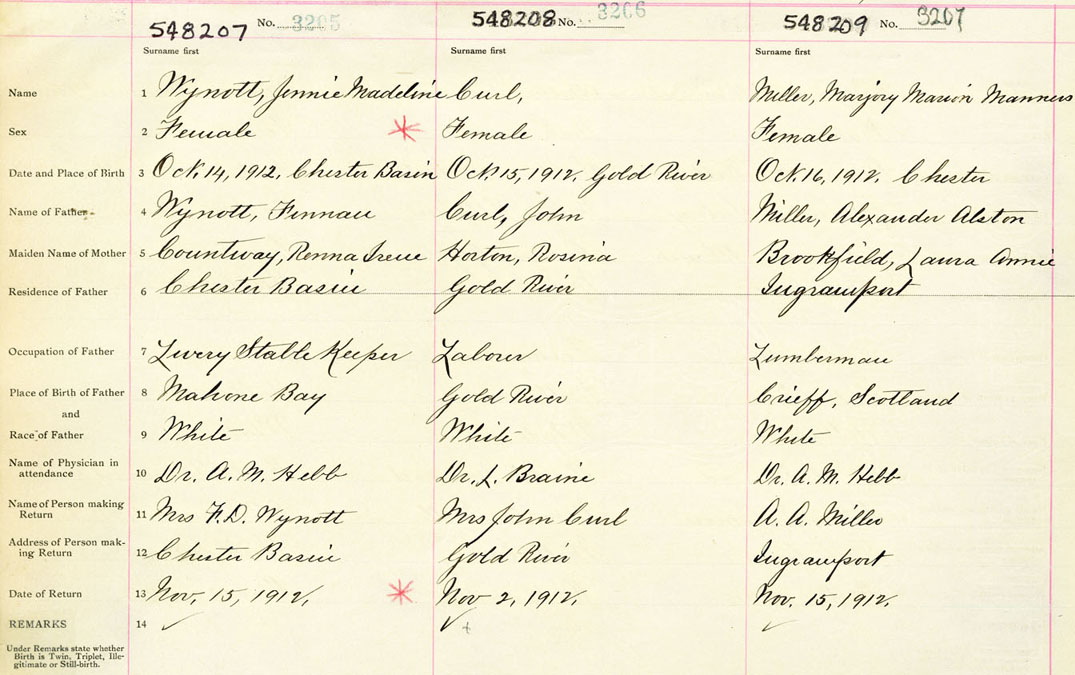 548207 No. 3205 548208 No. 3206 548209 No. 3207
Surname first Surname first Surname first
Name 1 Wynott, Jennie Madeline Curl, Miller, Marjory Marion Manners
Sex 2 Female Female Female
Date and Place of Birth 3 Oct. 14, 1912, Chester Basin Oct. 15, 1912, Gold River Oct. 16, 1912, Chester
Name of Father 4 Wynott, Curl, John Miller, Alexander Alston
Maiden Name of Mother 5 Countway, Renna Irene Horton, Rosina Brookfield, Laura Annie
Residence of Father 6 Chester Basin Gold River Ingramport
Occupation of Father 7 Livery Stable Keeper Laborer Lumberman
Place of Birth of Father 8 Mahone Bay Gold River Crieff, Scotland
and
Race of Father 9 White White White
Name of Physician in
attendance 10 Dr. A. M. Hebb Dr. L. Braine Dr. A. M. Hebb
Name of Person making
Return 11 Mrs F. D. Wynott Mrs John Curl A. A. Miller
Address of Person mak-
ing Return 12 Chester Basin Gold River Ingramport
Date of Return 13 Nov. 15, 1912, Nov 2, 1912, Nov. 15, 1912,
REMARKS 14
Under Remarks state whether
Birth is Twin, Triplet, Ille-
gitimate or Still-birth.